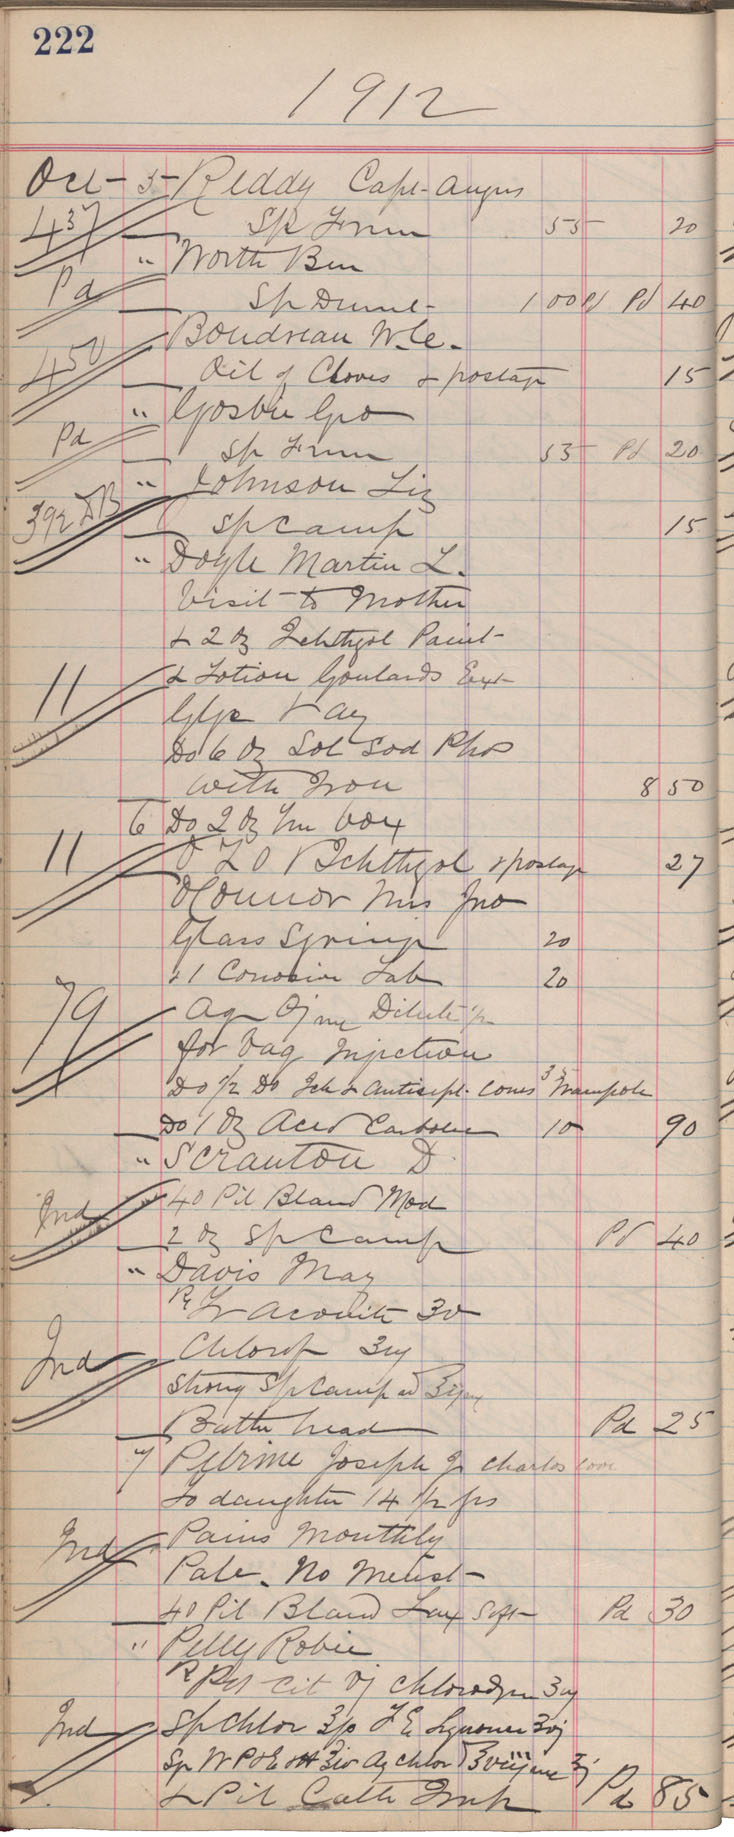 222
1912
Oct 5 Reddy Capt Angus
437 Sp Frum 55 20
" Worth Ben
Pd Sp 1 00 Pd Pd 40
Boudreau W.
450 Oil of Cloves & postage 15
" Gosbie Geo
Pd Sp Frum 55 Pd 20
" Johnson Liz
392 DB Sp Camp 15
" Doyle Martin L.
Visit to Mother
& 2 oz Ichthyol Paint
11 & Lotion Goulards Ext
Glyc & aq
Do 6 oz Sol Sod Phos
with Iron 8 50
6 Do 2 oz
11 Ichthyol & postage 27
O'Connor Mrs Jno
Glass Syringe 20
& 1 Corrosive Tab 20
79 Aq Dilute
for Vag Injection
Do 1/2 Do Ich & Antisept. Cones 35
Do 1 oz Acid Carbolic 10 90
" Scranton D
Ind 40 Pil Bland Mod
2 oz Sp Camp Pd 40
" Davis May
Rx Tr Aconite
Ind Chlorof
Strong Sp Camp
Bathe head Pd 25
7 Joseph Jr Charlos Cove
to daughter 14 1/2 yrs
Pains Monthly
Ind Pale. No Menst
40 Pil Bland Lax Pd 30
" Robie
Rx Pot Cit Chlorodyne
Ind Sp Chlor
Sp Aq Chlor
& Pil Cath Imp Pd 85